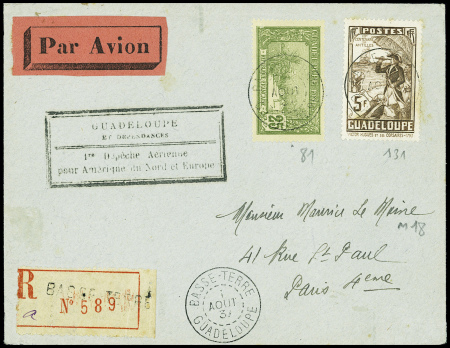 Par Avion
GUADELOUPE
ET DÉPENDANCES
1re Dépêche Aérienne
pour Amérique du Nord et Europe
25
AOUT
POSTES
5F
GUADELOUPE
81
131
M18
Monsieur Maurice Le Moine
41 Rue St Paul
Paris 4eme
R
BASSE-TERRE
N° 589
a
BASSE-TERRE
AOUT
37
GUADELOUPE